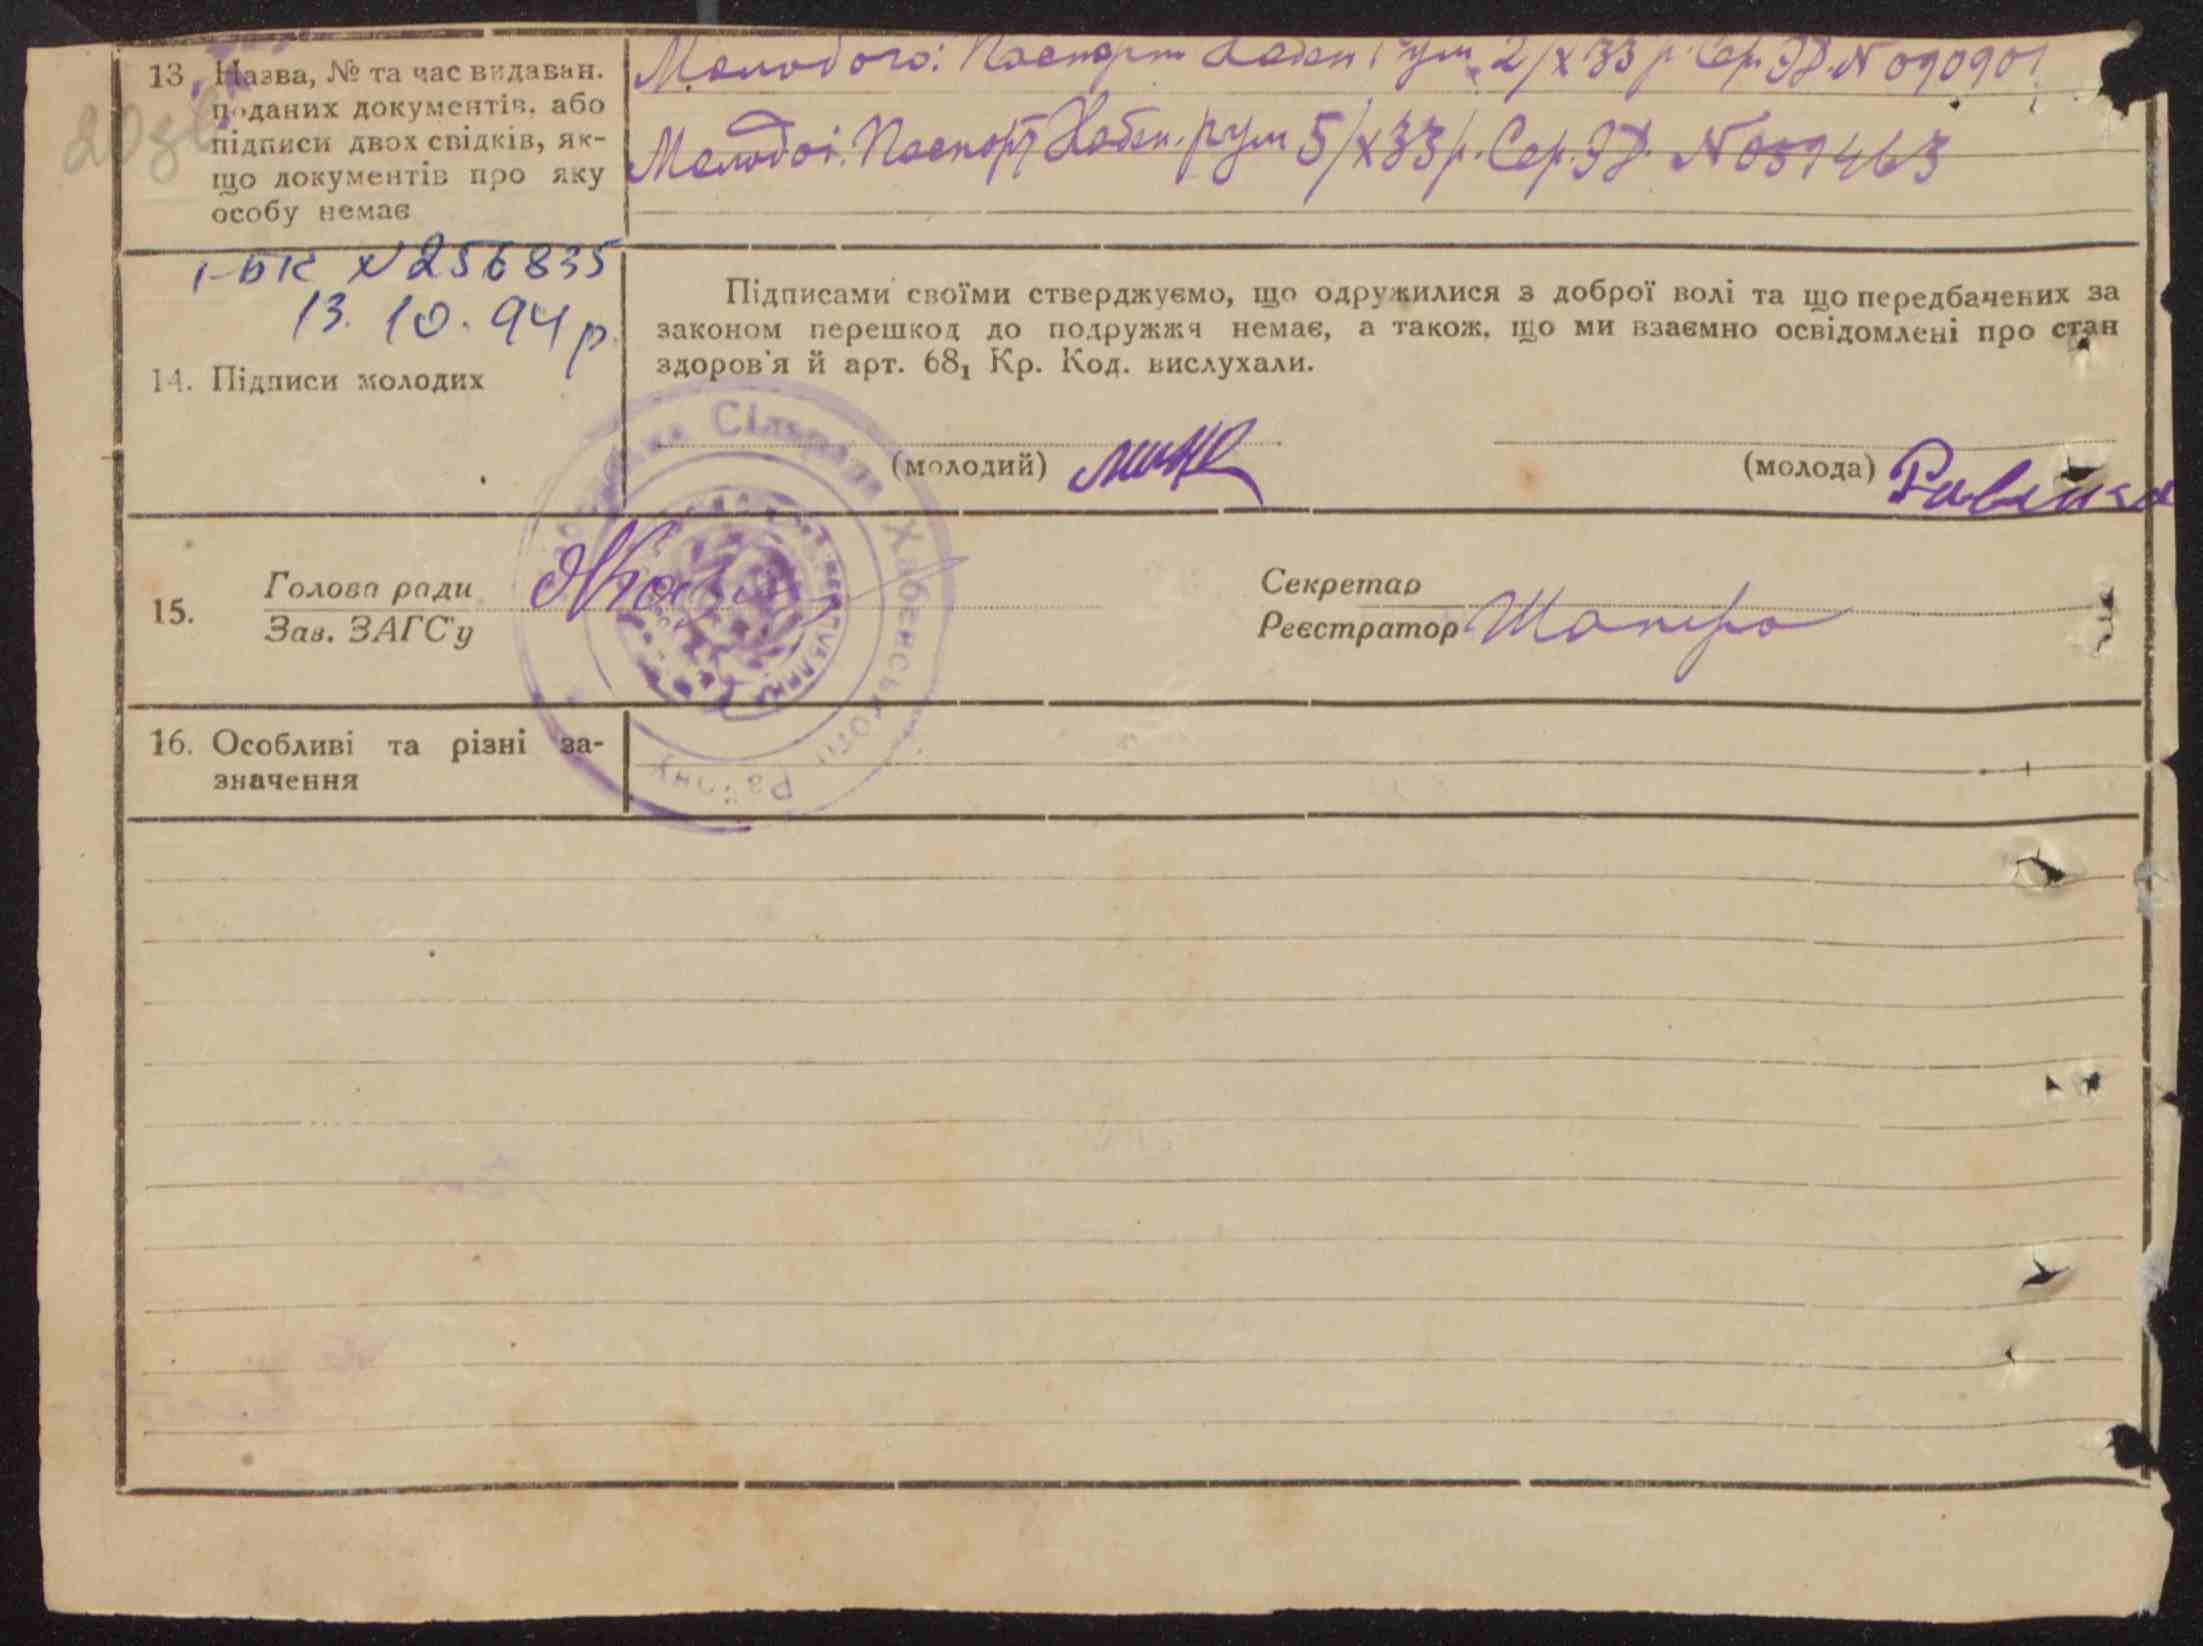 13. Назва, № та час видаван.
поданих документів, або
підписи двох свідків, як-
що документів про яку
особу немає
Молодого: Паспорт Хабен. рум 2/X 33 р. Сер. ЭД. N 090901
Молодої: Паспорт Хабен. рум 5/X 33 р. Сер. ЭД. N 059463
І-БК N 256835
13. 10. 94 р.
14. Підписи молодих
Підписами своїми стверджуємо, що одружилися з доброї волі та що передбачених за
законом перешкод до подружжя немає, а також, що ми взаємно освідомлені про стан
здоров'я й арт. 68₁ Кр. Код. вислухали.
(молодий)
(молода)
15.
Голова ради
Зав. ЗАГС'у
Секретар
Реєстратор Шапиро
Сільрада Хабенського Району
16. Особливі та різні за-
значення